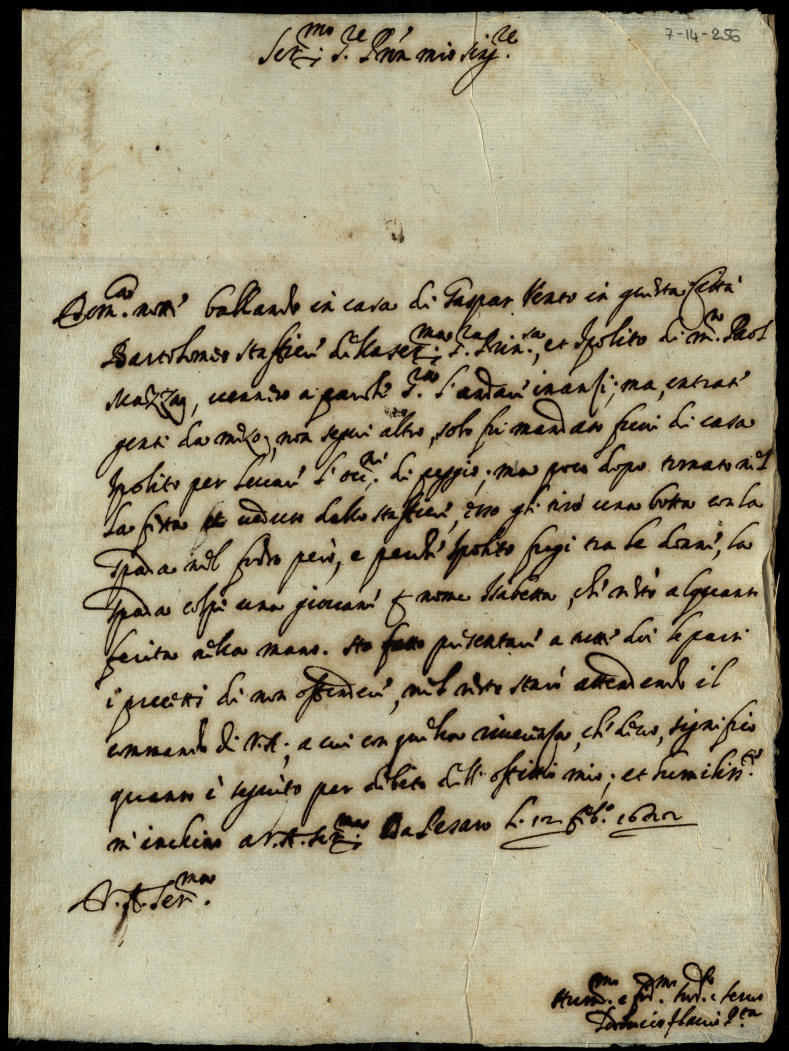 7-14-256
Ser.mo S.re P.ron mio sig.re
Dom.ca notte ballando in casa di Gaspar Vento in questa Città
Bartolomeo staffiere della Ser.ma S.ra Prin.sa, et Ipolito di m.o Paol
vennero a parole p. l'andare inanzi; ma, entrate
genti da mezo, non seguì altro, solo fu mandato fuori di casa
Ipolito per levare l'occ.ne di peggio; ma poco dopo tornato nel
la festa veduto dallo staffiere, esso gli tirò una botta con la
spada nel fodro però, e perche Ipolito fugì tra le donne, la
spada colpì una giovane p nome Isabetta, che restò alquanto
ferita nella mano. Ho fatto presentare a tutte doi le parti
i precetti di non offendere, nel resto starò attendendo il
commando di V.A.; a cui con quella riverenza, che devo, significo
quanto è seguito per debito dell'offitio mio; et humiliss.te
m'inchino a V.A. Ser.ma Da Pesaro li 12 feb.o
D. V. A. Ser.ma
Hum.mo e. servo